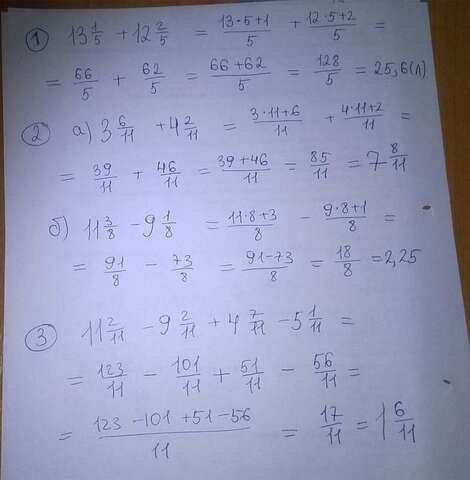 ① 13 1/5 + 12 2/5 = (13·5+1)/5 + (12·5+2)/5 =
= 66/5 + 62/5 = (66+62)/5 = 128/5 = 25,6(л)
② а) 3 6/11 + 4 2/11 = (3·11+6)/11 + (4·11+2)/11 =
= 39/11 + 46/11 = (39+46)/11 = 85/11 = 7 8/11
б) 11 3/8 - 9 1/8 = (11·8+3)/8 - (9·8+1)/8 =
= 91/8 - 73/8 = (91-73)/8 = 18/8 = 2,25
③ 11 2/11 - 9 2/11 + 4 7/11 - 5 1/11 =
= 123/11 - 101/11 + 51/11 - 56/11 =
= (123-101+51-56)/11 = 17/11 = 1 6/11